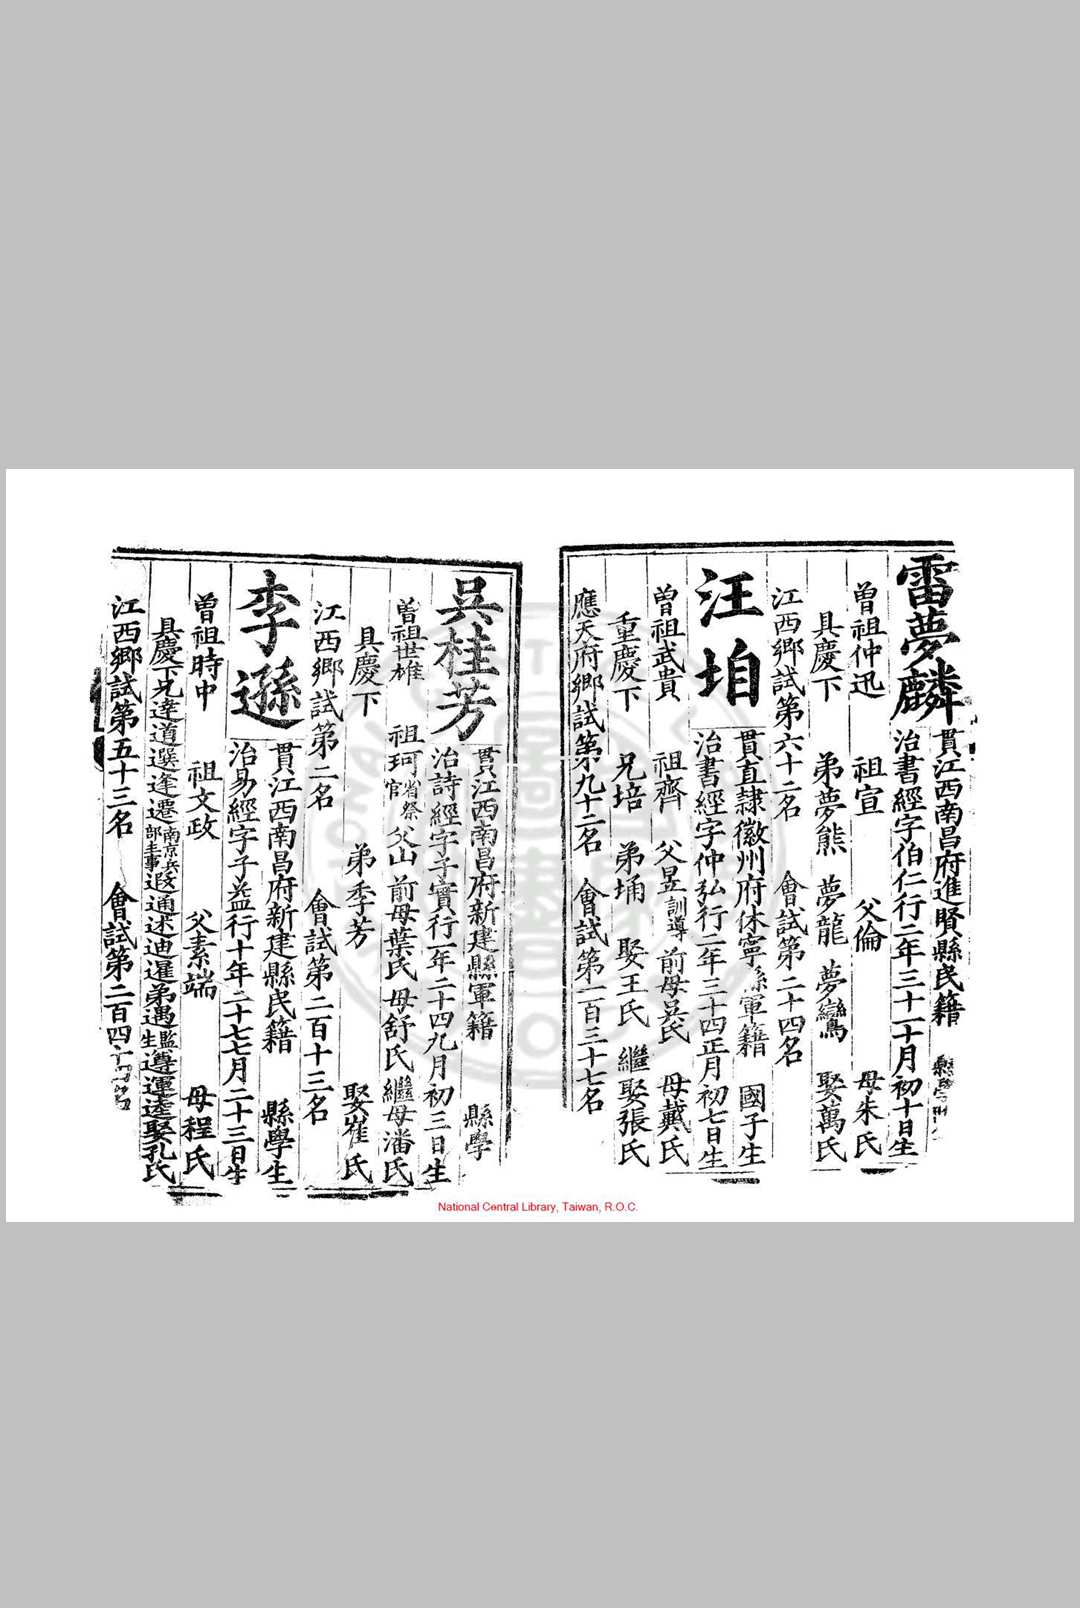 雷夢麟
貫江西南昌府進賢縣民籍
治書經字伯仁行二年三十一十月初十日生
曾祖仲迅 祖宣 父倫 母朱氏
具慶下 弟夢熊 夢龍 夢鸞 娶萬氏
江西鄉試第六十二名 會試第二十四名
汪垍
貫直隸徽州府休寧縣軍籍 國子生
治書經字仲弘行二年三十四正月初七日生
曾祖武貴 祖齊 父昱訓導 前母吳氏 母戴氏
重慶下 兄培 弟埇 娶王氏 繼娶張氏
應天府鄉試第九十二名 會試第二百三十七名
吳桂芳
貫江西南昌府新建縣軍籍 縣學
治詩經字子實行一年二十四九月初三日生
曾祖世雄 祖珂省祭官 父山 前母葉氏 母舒氏 繼母潘氏
具慶下 弟季芳 娶崔氏
江西鄉試第二名 會試第二百十三名
李遜
貫江西南昌府新建縣民籍 縣學生
治易經字子益行十年二十七七月二十三日生
曾祖時中 祖文政 父素端 母程氏
具慶下兄達道選逢遷南京兵部主事遐通述迪暹弟遇監生遵運逵娶孔氏
江西鄉試第五十三名 會試第二百四十名
National Central Library, Taiwan, R.O.C.